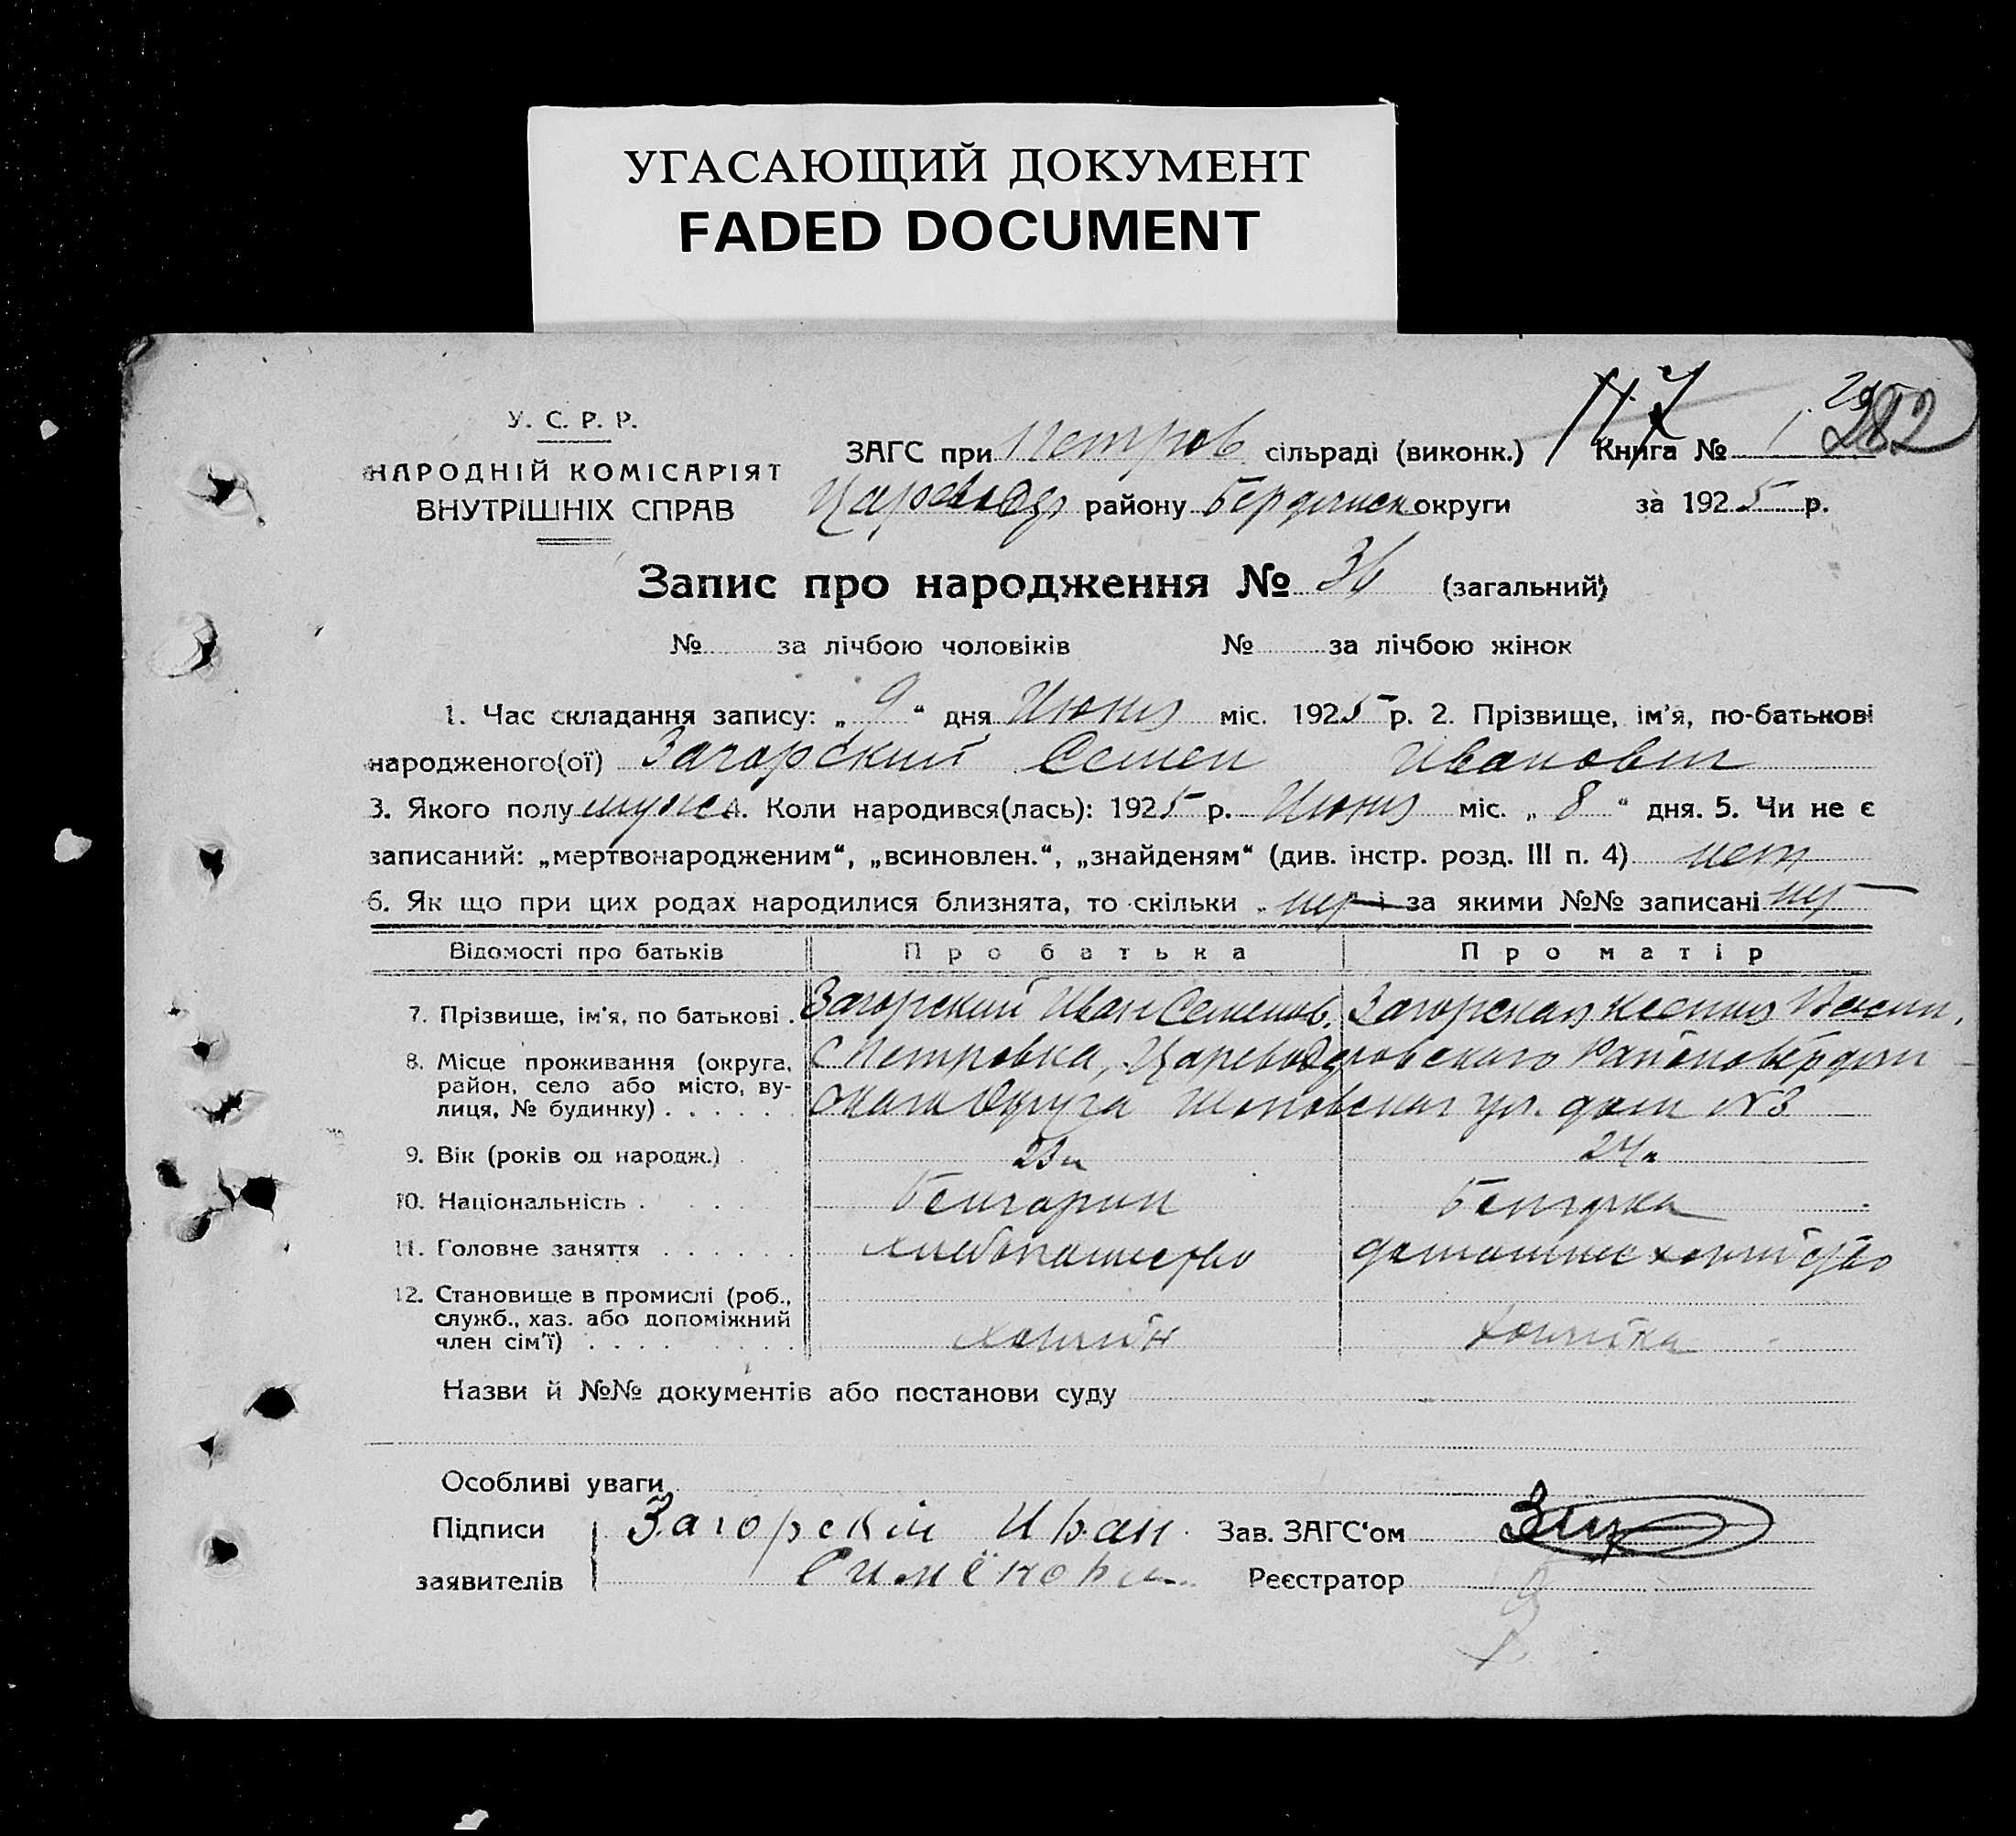 УГАСАЮЩИЙ ДОКУМЕНТ
FADED DOCUMENT
У. С. Р. Р.
НАРОДНІЙ КОМІСАРІЯТ
ВНУТРІШНІХ СПРАВ
ЗАГС при Петров сільраді (виконк.) Книга № 1 282
район­у Бердянск округи за 1925 р.
Запис про народження № 36 (загальний)
№ за лічбою чоловіків № за лічбою жінок
1. Час складання запису: „ 9 “ дня Июня міс. 1925 р. 2. Прізвище, ім'я, по-батькові
народженого(ої) Загорский Семен Иванович
3. Якого полу мужс 4. Коли народився(лась): 1925 р. Июня міс. „ 8 “ дня. 5. Чи не є
записаний: „мертвонародженим“, „всиновлен.“, „знайденям“ (див. інстр. розд. III п. 4) нет
6. Як що при цих родах народилися близнята, то скільки нет і за якими №№ записані нет
Відомості про батьків Про батька Про матір
7. Прізвище, ім'я, по батькові . Загорский Иван Семенов. Загорская Ксения
8. Місце проживання (округа,
район, село або місто, ву-
лиця, № будинку) . . . . . .
С Петровка, Цареводаровского Района Бердян
ского Округа ул. дом №3
9. Вік (років од народж.) . 24 л
10. Національність . . . . Болгарин Болгарка
11. Головне заняття . . . . . . хлебопашество домашнее хозяйство
12. Становище в промислі (роб.,
служб., хаз. або допоміжний
член сім'ї) . . . . . . . . .
хозяин хозяйка
Назви й №№ документів або постанови суду
Особливі уваги
Підписи Загорскій Иван Зав. ЗАГС'ом
заявителів Симёнови Реєстратор